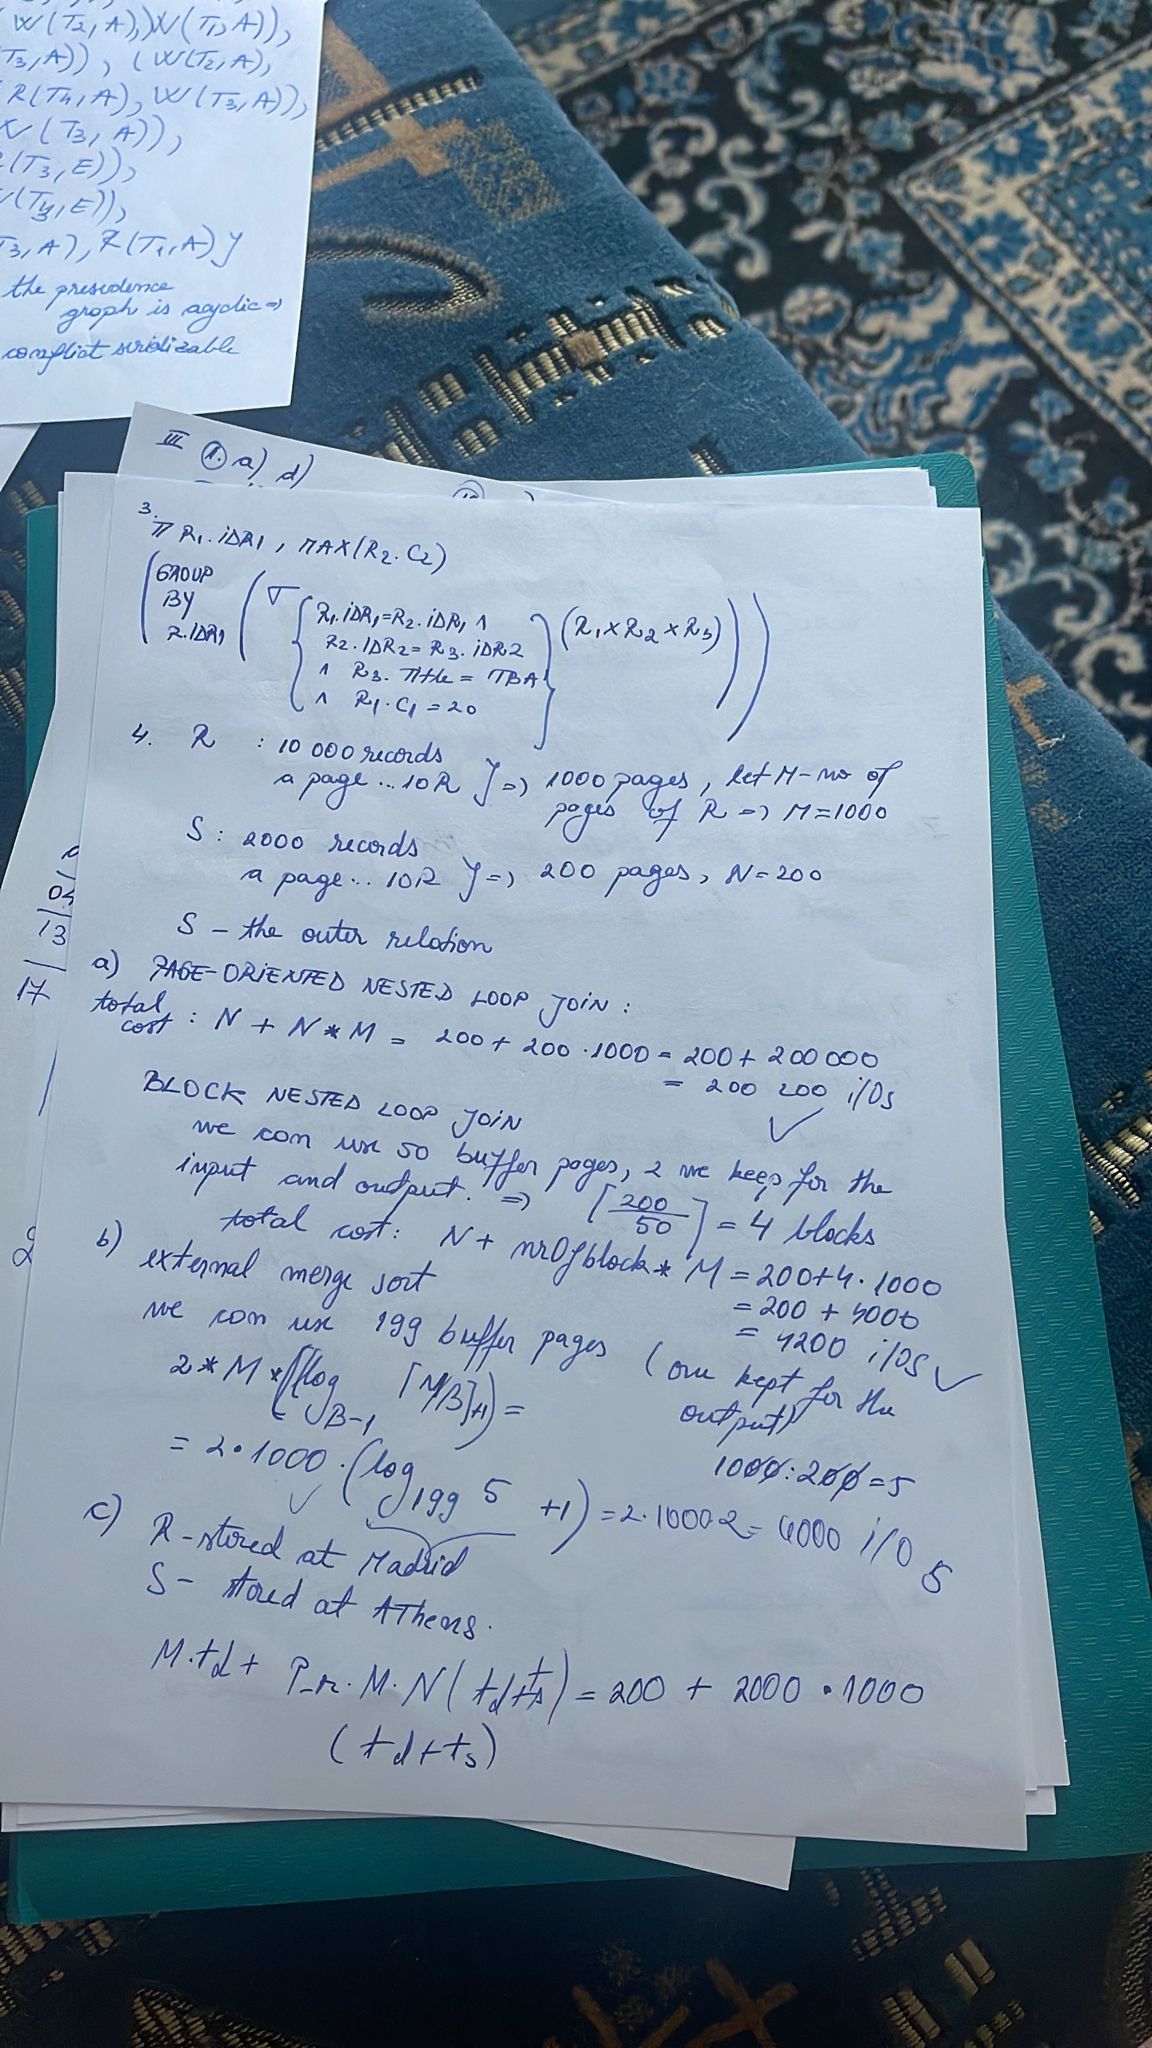 W(T2,A), W(T1,A)),
T3,A)), (W(T2,A),
R(T4,A), W(T3,A)),
(T3,A)),
(T3,E)),
,E)),
T3,A), R(T1,A)}
the presedence
graph is acyclic =>
conflict serializable
III 1. a) d)
3.
π R1.iDR1, MAX(R2.C2)
(GROUP BY R.IDR1 (σ {R1.iDR1=R2.iDR1 ∧
R2.IDR2=R3.iDR2
∧ R3.Title = TBA
∧ R1.C1=20} (R1×R2×R3)))
4. R : 10 000 records
a page... 10R } => 1000 pages, let M-no of
pages of R => M=1000
S: 2000 records
a page... 10R } => 200 pages, N=200
S - the outer relation
a) PAGE-ORIENTED NESTED LOOP JOIN:
total cost: N + N * M = 200 + 200 · 1000 = 200 + 200 000
= 200 200 i/Os
✓
BLOCK NESTED LOOP JOIN
we can use 50 buffer pages, 2 we keep for the
input and output. => ⌈200/50⌉ = 4 blocks
total cost: N + nrOfblock * M = 200+4·1000
= 200 + 4000
= 4200 i/Os ✓
b) external merge sort
we can use 199 buffer pages (one kept for the
output)
2*M*(⌈log B-1 ⌈M/B⌉⌉+1) =
1000:200=5
= 2·1000·(log 199 5 +1) = 2·1000·2 = 4000 i/Os
✓
c) R - stored at Madrid
S - stored at Athens.
M·td + P_r·M·N(td+ts) = 200 + 2000 · 1000
(td+ts)
04
13
17